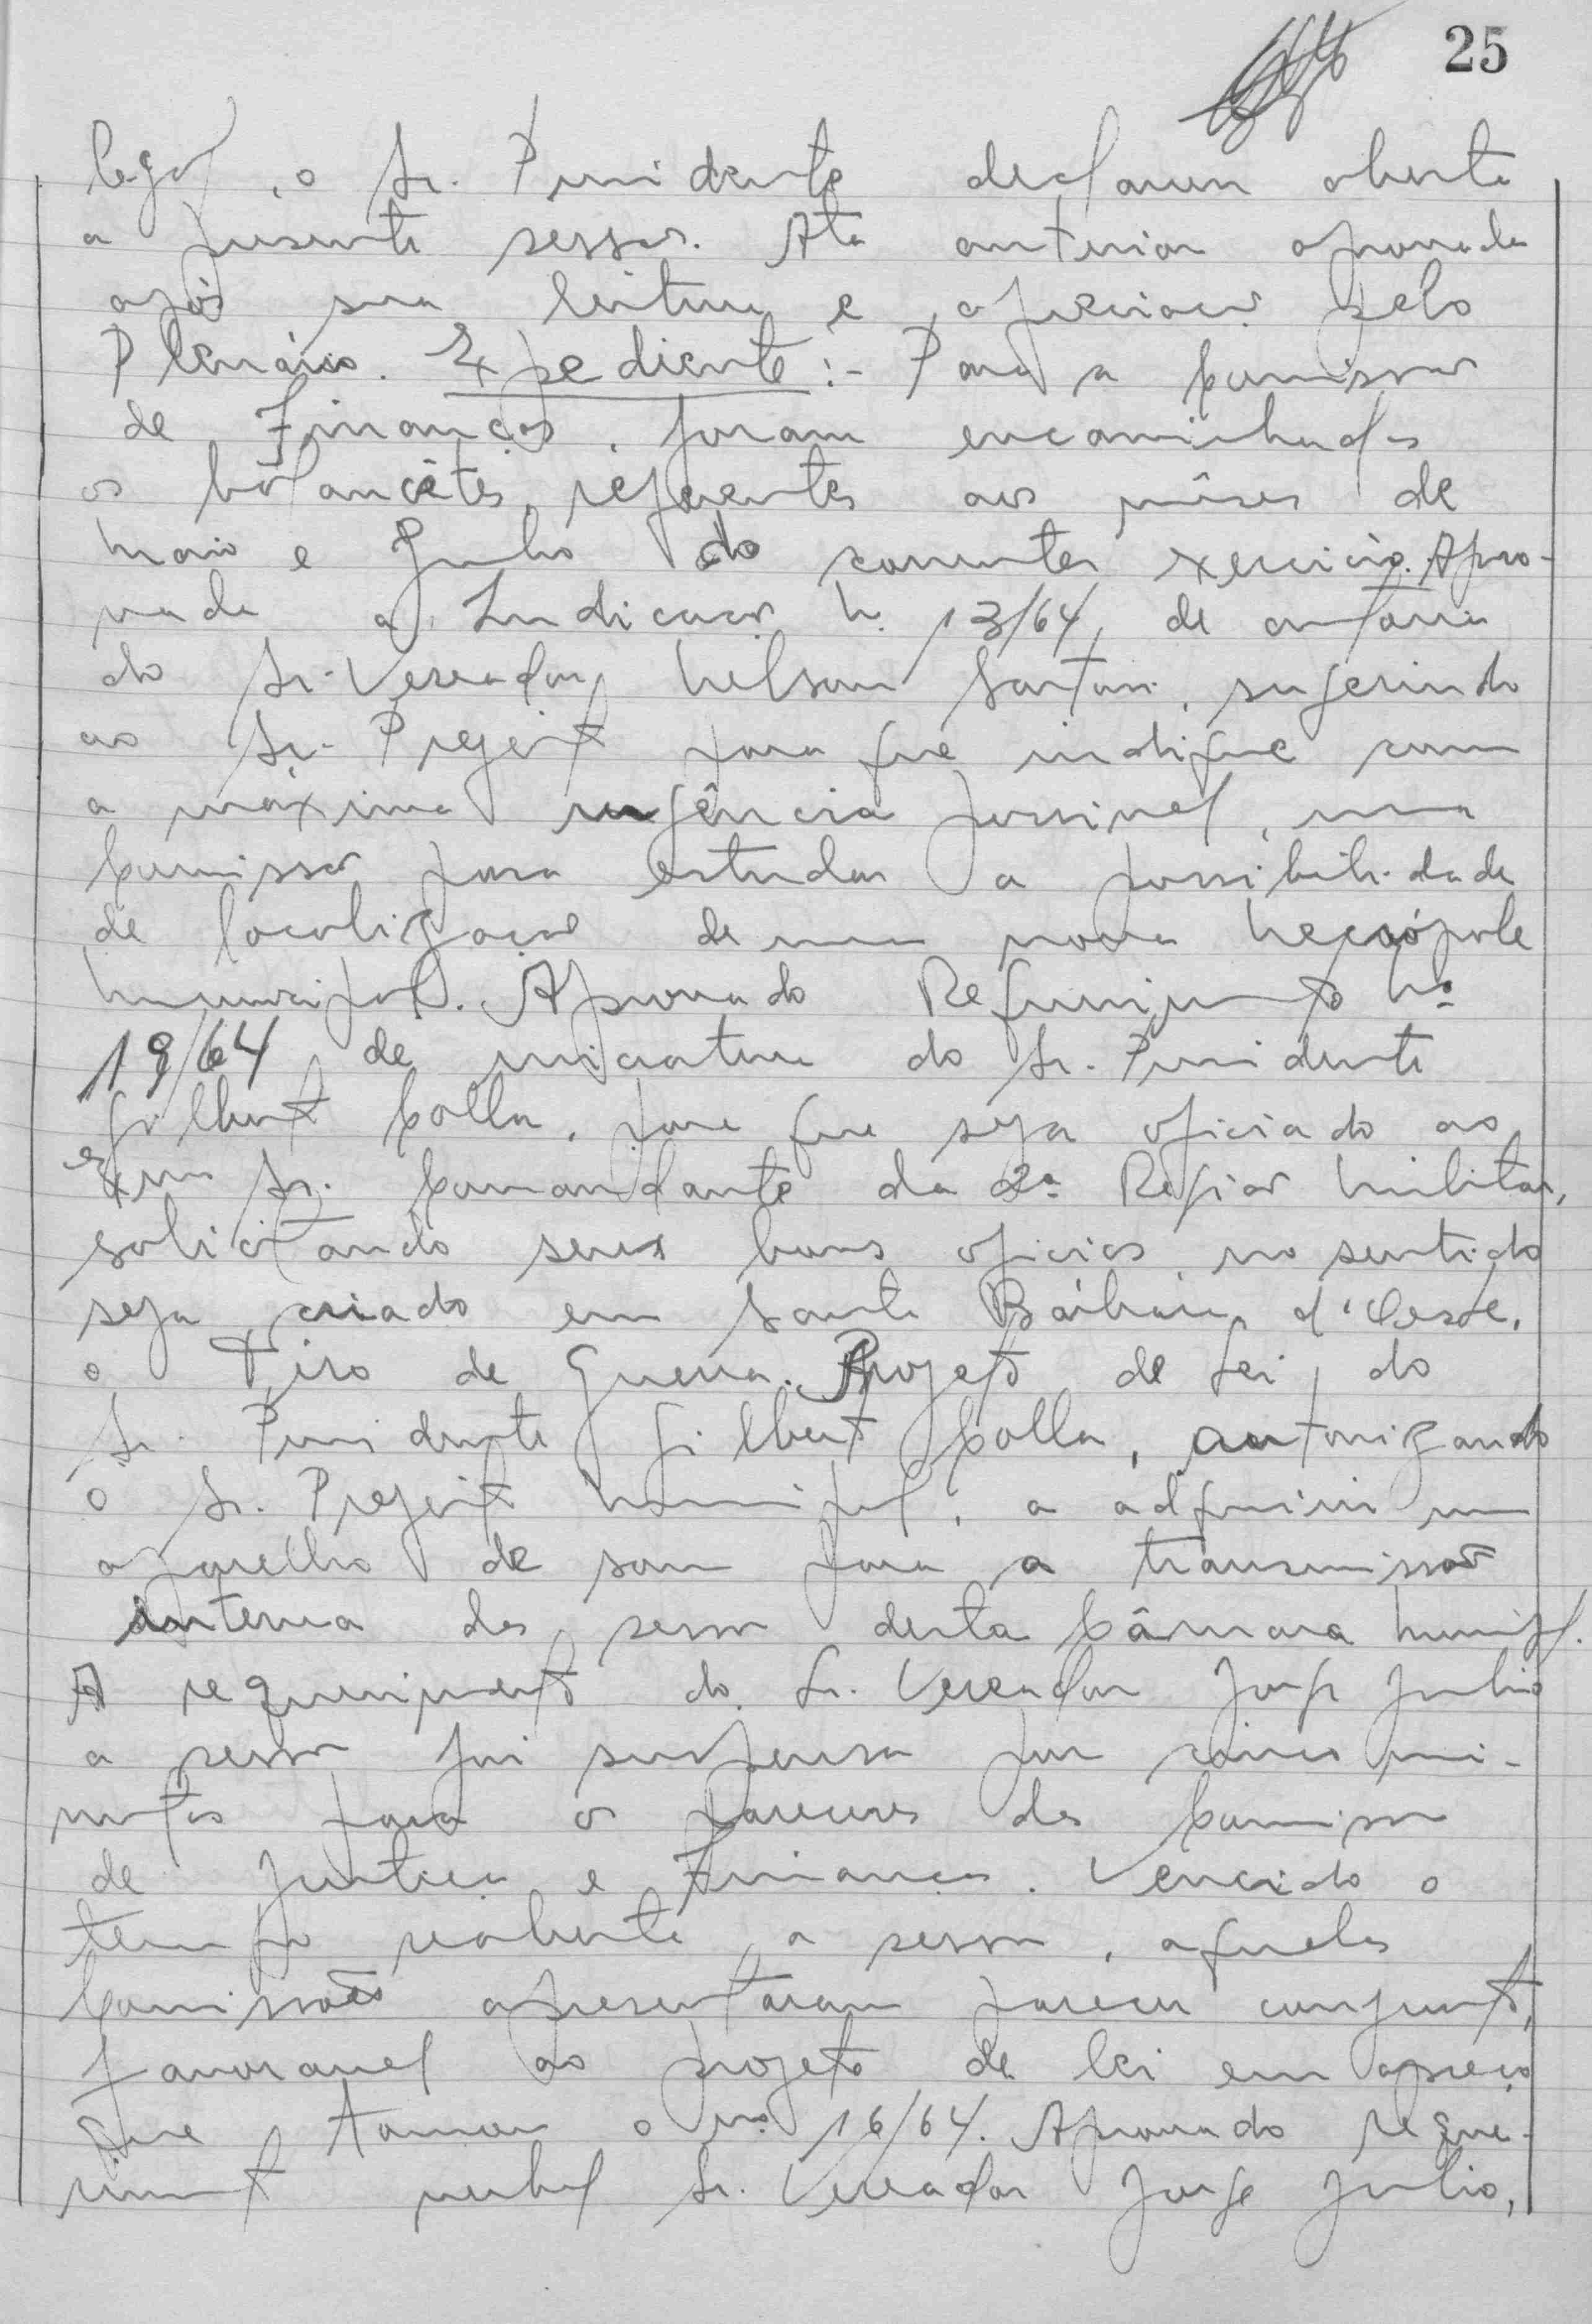 25
legal, o Sr. Presidente declarou aberta
a presente sessão. Ata anterior aprovada
após sua leitura e apreciação pelo
Plenário. Expediente:- Para a Comissão
de Finanças, foram encaminhados
os balancêtes referentes aos mêses de
Maio e Junho do corrente exercicio. Apro-
vada a Indicação n. 13/64, de autoria
do Sr. Vereador Nelson Sartori, sugerindo
ao Sr. Prefeito para que indique com
a máxima urgência possivel, uma
Comissão para estudar a possibilidade
de localização de uma nova Necrópole
Municipal. Aprovado Requerimento nº
19/64 de iniciativa do Sr. Presidente
Gilbert Colla, para que seja oficiado ao
Exmo Sr. Comandante da 2ª Região Militar,
solicitando seus bons oficios no sentido
seja criado em Santa Bárbara d'Oeste,
o Tiro de Guerra. Projeto de Lei, do
Sr. Presidente Gilbert Colla, autorizando
o Sr. Prefeito Municipal, a adquirir um
aparelho de som para a transmissão
interna das sessão desta Câmara Municipal.
A requerimento do Sr. Vereador Jorge Julio
a sessão foi suspensa por cinco mi-
nutos para os pareceres das Comissão
de Justiça e Finanças. Vencido o
tempo reaberta a sessão, aquelas
Comissões apresentaram parecer conjunto,
favoravel ao projeto de lei em apreço
que tomou o nº 16/64. Aprovado reque-
rimento verbal Sr. Vereador Jorge Julio,